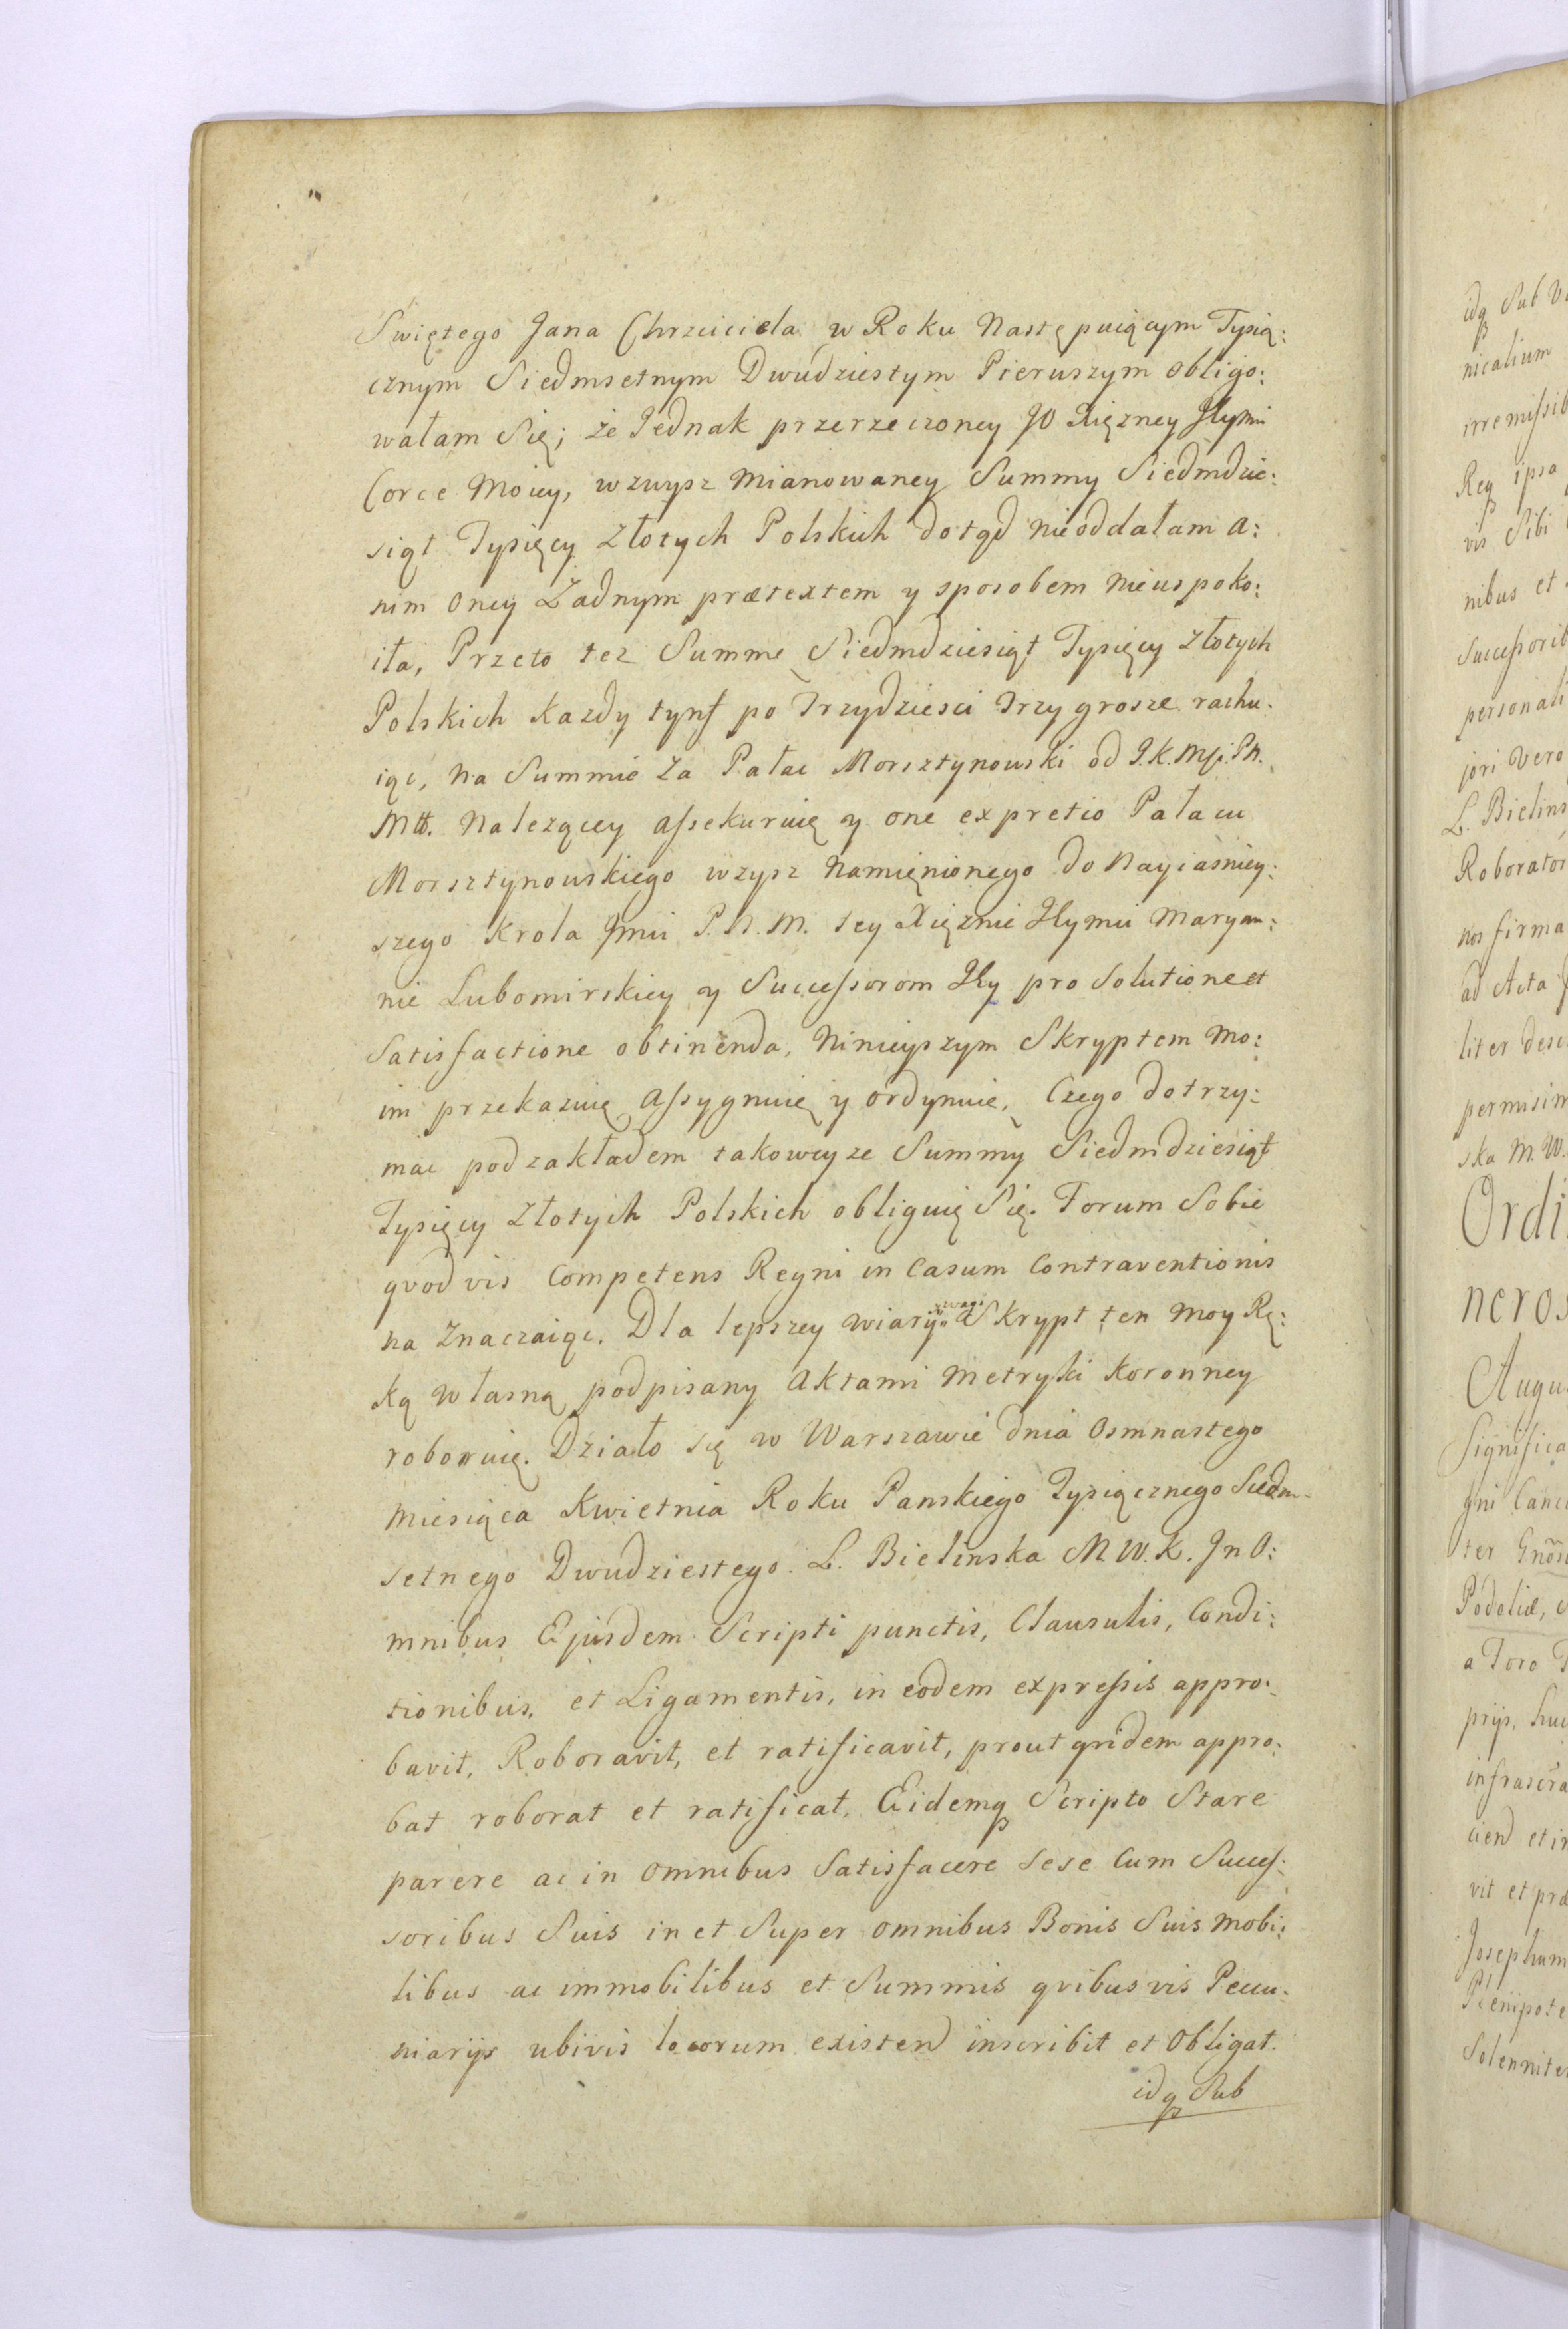 Swiętego Jana Chrzciciela w Roku Następuiącym Tysią:
cznym Siedmsetnym Dwudziestym Pierwszym obligo:
wałam Się; że Jednak przerzeczoney JO Xięzney Jeymci
Corce Moiey, wzwysz Mianowaney Summy Siedmdzie:
siąt Tysięcy Złotych Polskich dotąd nieoddałam a:
nim oney Zadnym prætextem y sposobem nieuspoko:
iła, Przeto tez Summę Siedmdziesiąt Tysięcy złotych
Polskich każdy tynf po Trzydziesci Trzy grosze rachu:
iąc, na Summie Za Pałac Morsztynowski od J.K.Mci. Pn.
Młł. Nalezącey assekuruię y one ex pretio Pałacu
Morsztynowskiego wzysz Namięnionego do Nayiasniey:
szego Krola Jmci P.N.M. tey Xięznie Jeymci Maryan:
nie Lubomirskiey y Successorom Jey pro Solutione et
Satisfactione obtinenda, Ninieyszym Skryptem mo:
im przekazuię assygnuię y ordynuię, Czego dotrzy:
mac pod zakładem takoweyze Summy Siedmdziesiąt
Tysięcy Złotych Polskich obliguię Się. Forum Sobie
qvodvis Competens Regni in Casum Contraventionis
na Znaczaiąc. Dla lepszey wiary y wagi Skrypt ten moy Rę:
ką własną podpisany Aktami Metryki Koronney
roboruię. Działo się w Warszawie dnia Osmnastego
Miesiąca Kwietnia Roku Panskiego Tysiącznego Siedm-
setnego Dwudziestego. L. Bielinska M.W.K. In O:
mnibus Ejusdem Scripti punctis, Clausulis, Condi:
tionibus, et Ligamentis, in eodem expressis appro:
bavit, Roboravit, et ratificavit, prout qvidem appro:
bat roborat et ratificat. Eidemq Scripto Stare
parere ac in omnibus Satisfacere Sese Cum Succes:
soribus Suis in et Super omnibus Bonis Suis mobi:
libus ac immobilibus et Summis qvibusvis Pecu:
niarijs ubivis locorum existen inscribit et obligat.
idq Sub